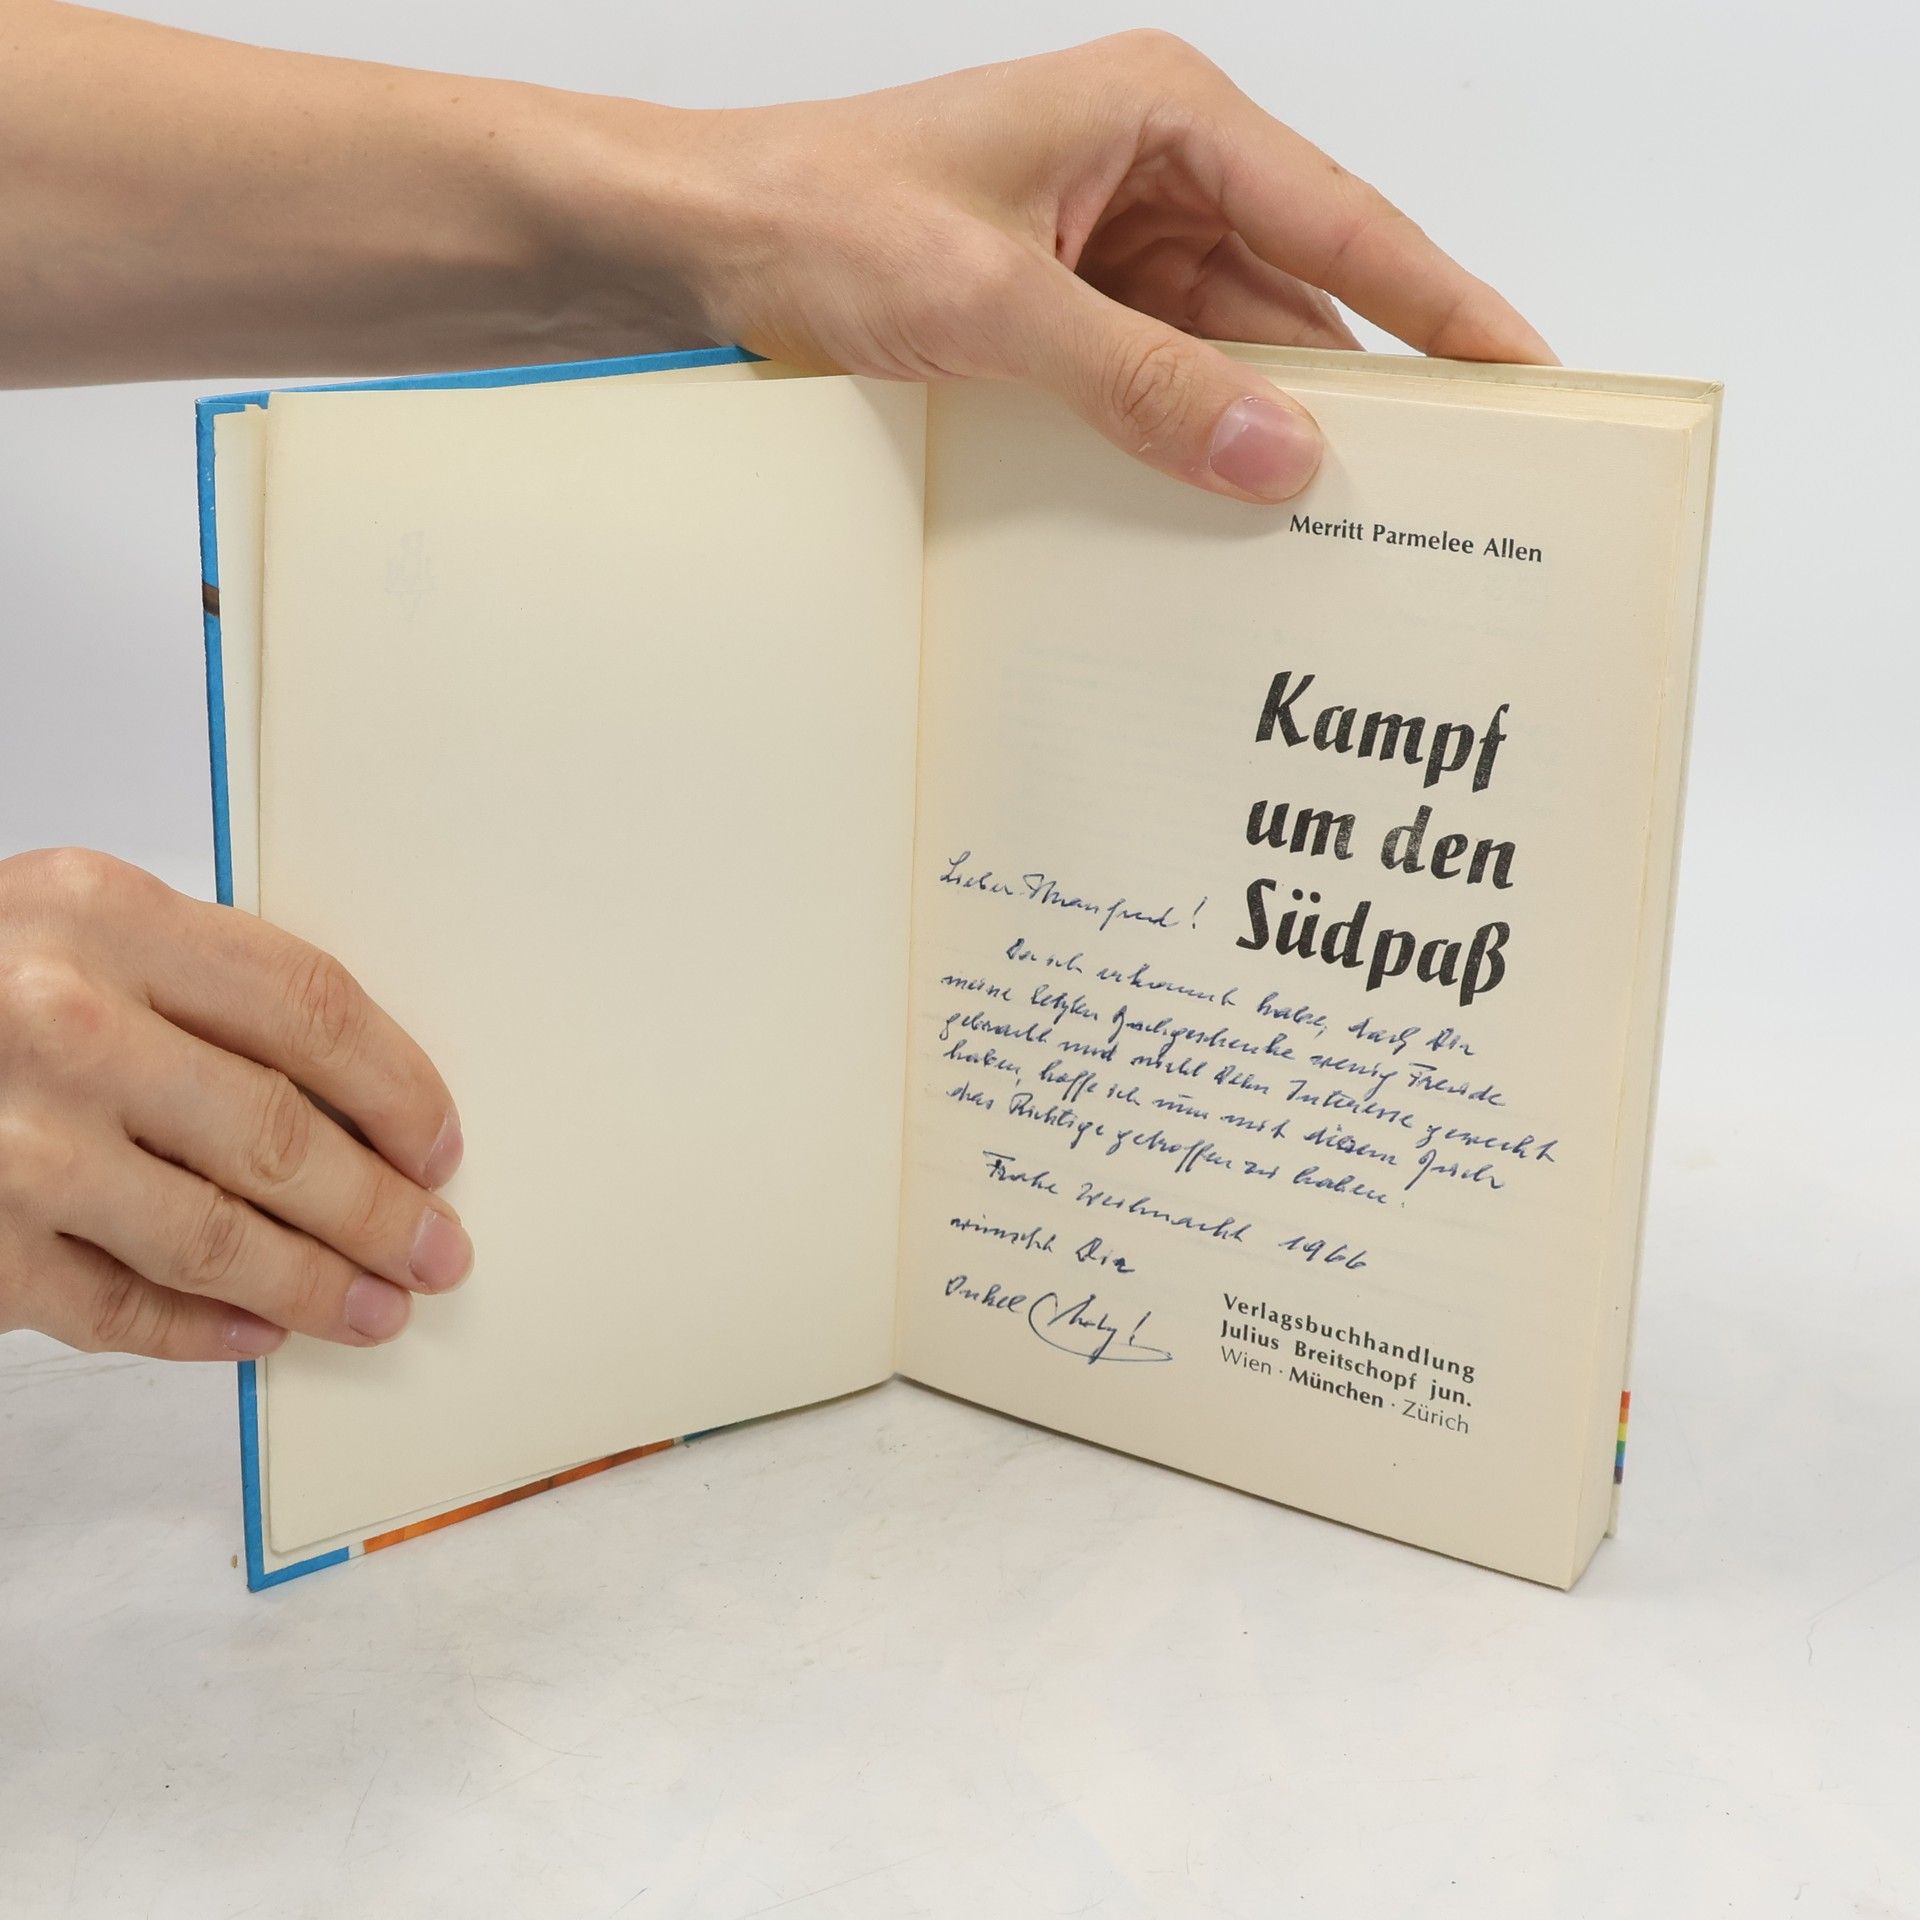 Merritt Parmelee Allen
Kampf
um den
Südpaß
Lieber Manfred!
Da ich erkannt habe, daß Dir
meine letzten Buchgeschenke wenig Freude
gebracht und nicht Dein Interesse geweckt
haben, hoffe ich nun mit diesem Buch
das Richtige getroffen zu haben.
Frohe Weihnacht 1966
wünscht Dir
Onkel
Verlagsbuchhandlung
Julius Breitschopf jun.
Wien · München · Zürich